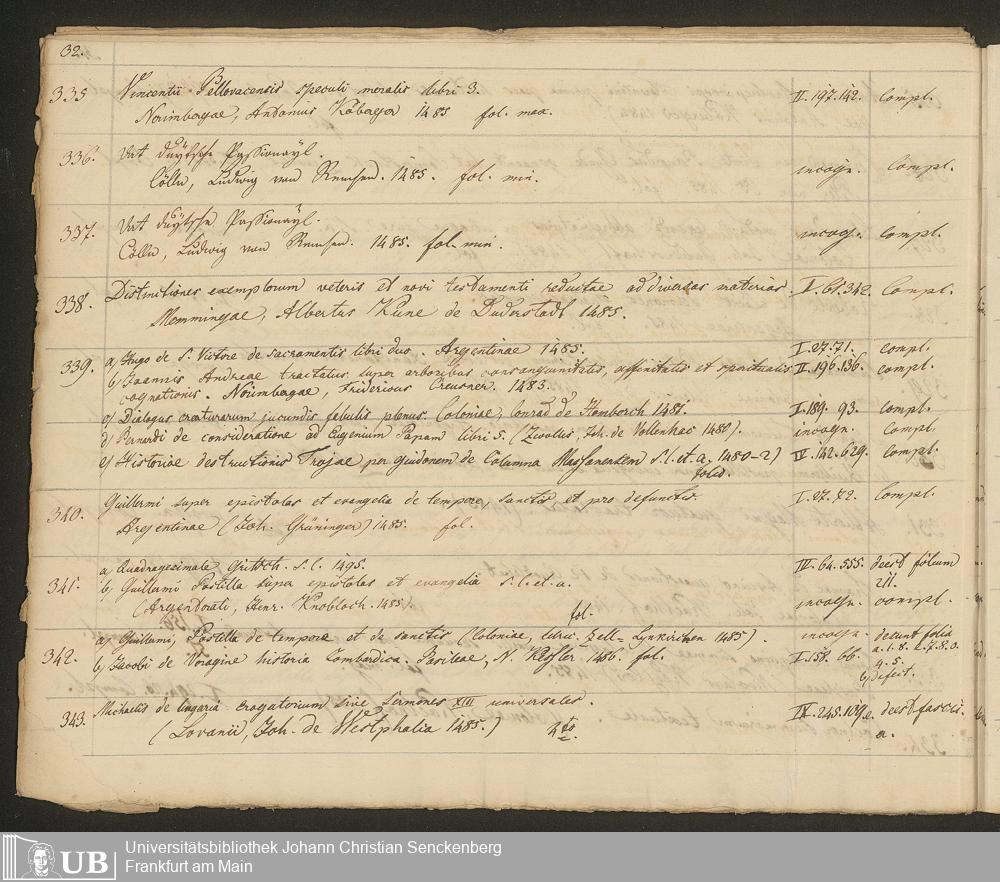 32.
335 Vincentii Bellovacensis speculi moralis libri 3. II. 197. 142. compl.
Nürimbergae, Andonius Köberger 1485 fol. max.
336. Dat duÿtsche Passionayl. incogn. compl.
Cölln, Ludwig von Renchen. 1485. fol. min.
337. Dat duÿtsche Passionayl. incogn. compl.
Cölln, Ludwig von Renchen. 1485. fol. min.
338. Distinctiones exemplorum veteris et novi testamenti reductae ad diversas materias. I. 61. 342. Compl.
Memmingae, Albertus Kune de Duderstadt 1485.
339. a) Hugo de S. Victore de sacramentis libri duo. Argentinae 1485. I. 27. 71. compl.
b) Joannis Andreae tractatus super arboribus consanguinitatis, affinitatis et spiritualis II. 196. 136. compl.
cognationis. Nürimbergae, Fridericus Creusner. 1483.
c) Dialogus creaturarum jucundis fabulis plenus. Coloniae, Conrad de Homborch 1481. I. 189. 93. compl.
d) Bernardi de consideratione ad Eugenium Papam libri 5. (Zwollis, Joh. de Vollenhoe 1480). incogn. compl.
e) Historiae destructionis Trojae, per Guidonem de Columna Messanensem S. l. et. a. 1480-2) IV. 142. 629. compl.
folio.
340. Guillermi super epistolas et evangelia de tempore, sanctis et pro defunctis. I. 27. 72. Compl.
Argentinae (Joh. Grüninger) 1485. fol.
341. a) Quadragesimale Gritsch. S. l. 1495. IV. 64. 555. deest folium
z11.
b) Guillermi Postilla super epistolas et evangelia S. l. et. a. incogn. compl.
(Argentorati, Henr. Knobloch. 1485). fol.
342. a) Guillermi, Postilla de tempore et de sanctis (Coloniae, Ulric. Zell-Lynkirchen 1485). incogn. desunt folia
a. 1. 8. 2. 7. 8. o.
4. 5.
b) Jacobi de Voragine historia Lombardica. Basileae, N. Kessler 1486. fol. I. 158. 66.
b) defect.
343. Michaelis de Ungaria evagatorium sive Sermones XIII universales. IV. 245. 109.e. deest fascic.
(Lovanii, Joh. de Westphalia 1485.) 4to a.
UB Universitätsbibliothek Johann Christian Senckenberg
Frankfurt am Main